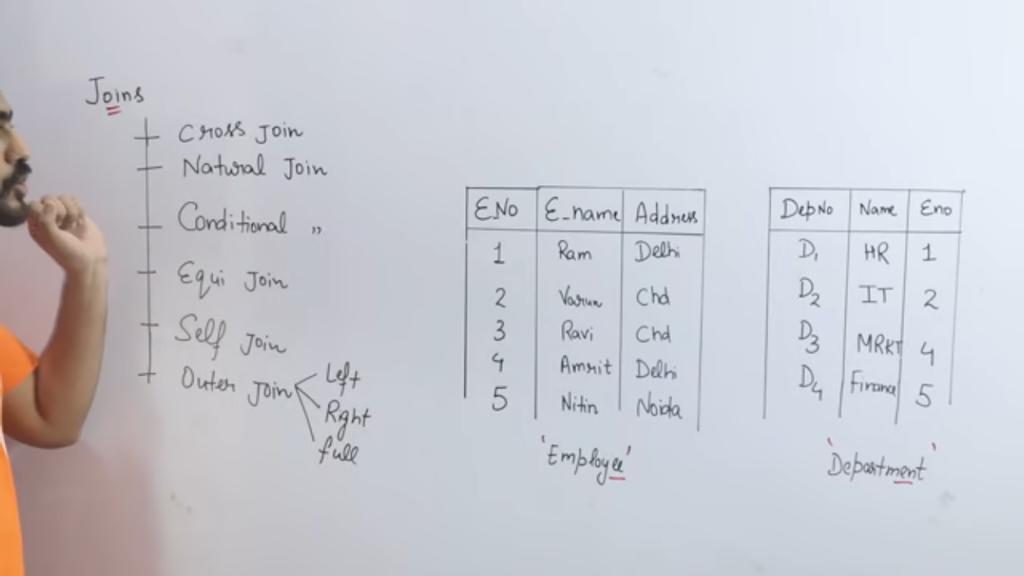 Joins
Cross Join
Natural Join
Conditional "
Equi Join
Self Join
Outer Join
Left
Right
full
E.No E_name Address
1 Ram Delhi
2 Varun Chd
3 Ravi Chd
4 Amrit Delhi
5 Nitin Noida
'Employee'
DepNo Name Eno
D1 HR 1
D2 IT 2
D3 MRKT 4
D4 Finana 5
'Department'